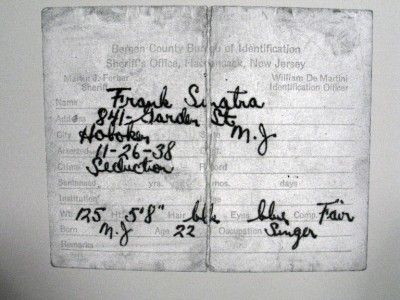 Bergen County Bureau of Identification
Sheriff's Office, Hackensack, New Jersey
William De Martini
Sheriff Identification Officer
Name Frank Sinatra
Address 841 - Garden St
City Hoboken N.J
11-26-38
Crime Seduction Record
Sentenced yrs. mos. days.
Institution
125 5'8" Hair blk Eyes blue Comp. Fair
N.J Age 22 Occupation Singer
Remarks